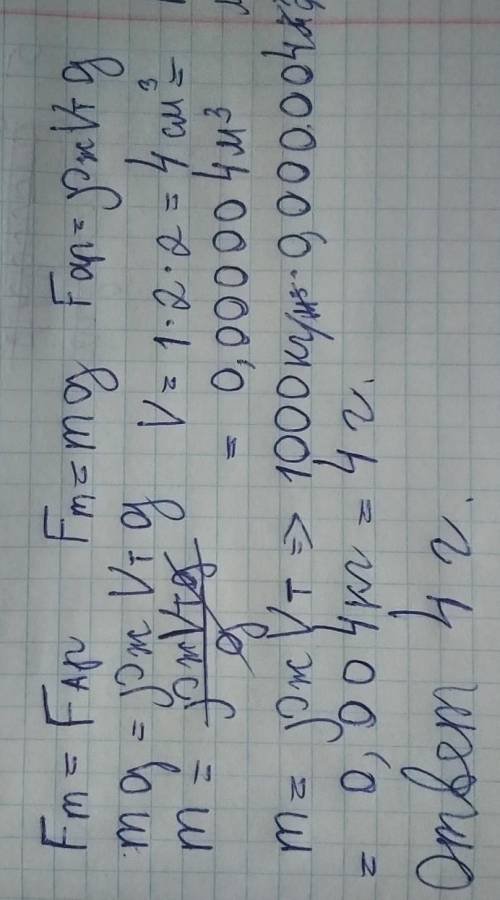 Fт = FАр   Fт = mg   Fар = ρж Vт g
mg = ρж Vт g   V = 1·2·2 = 4 см³ =
m = ρж Vт g / g   = 0,000004 м³
m = ρж Vт => 1000 кг/м³ · 0,000004 м³
= 0,004 кг = 4 г.
Ответ 4 г.